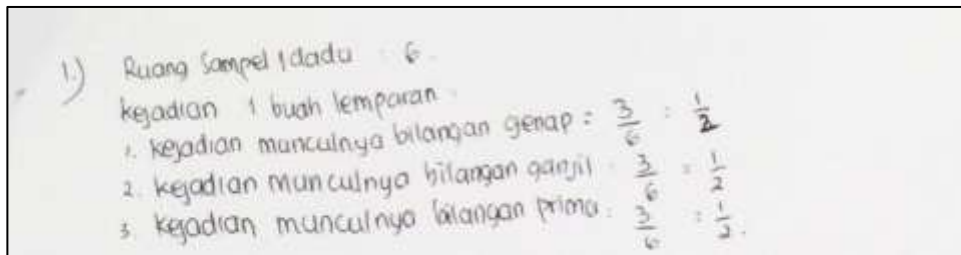 1.) Ruang Sampel 1 dadu : 6.
kejadian 1 buah lemparan.
1. kejadian munculnya bilangan genap : 3/6 : 1/2
2. kejadian munculnya bilangan ganjil : 3/6 : 1/2
3. kejadian munculnya bilangan prima : 3/6 : 1/2.